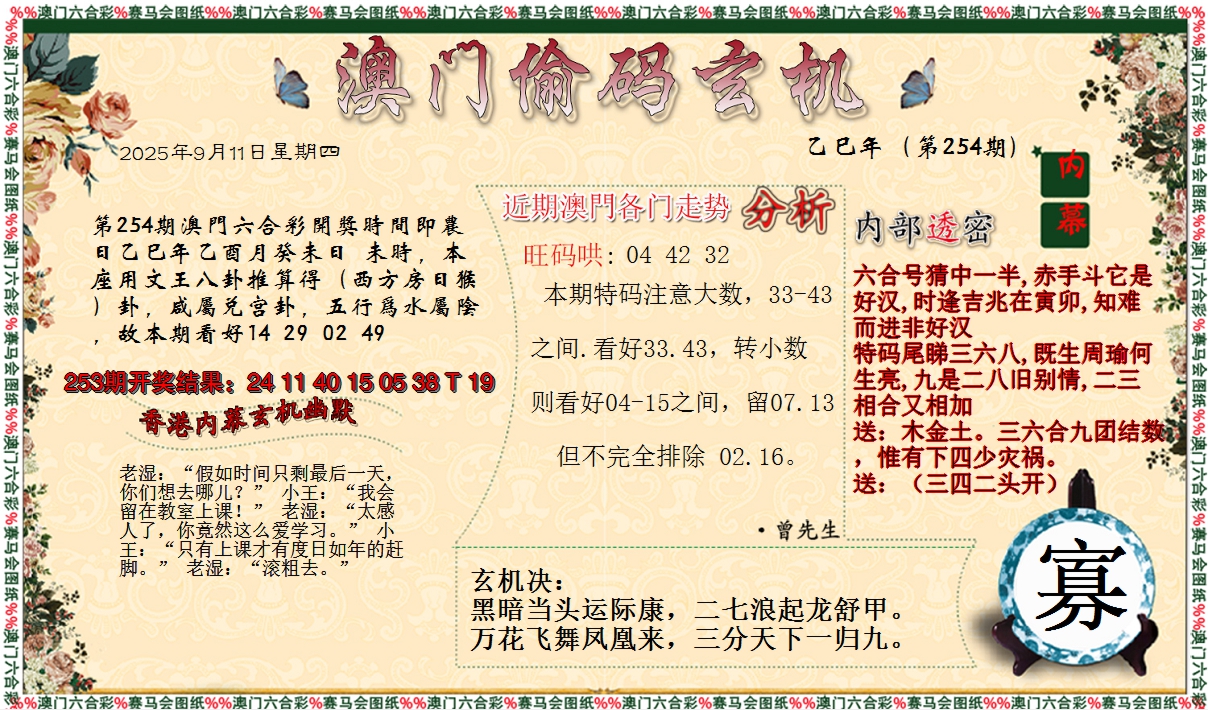 %%澳门六合彩%赛马会图纸%%澳门六合彩%赛马会图纸%%澳门六合彩%赛马会图纸%%澳门六合彩%赛马会图纸%%澳门六合彩%赛马会图纸%%澳门六合彩%赛马会图纸%%
澳门偷码玄机
2025年9月11日星期四
乙巳年（第254期）
内幕
第254期澳門六合彩開獎時間即農
日乙巳年乙酉月癸未日 未時，本
座用文王八卦推算得（西方房日猴
）卦，咸屬兑宫卦，五行爲水屬陰
，故本期看好14 29 02 49
253期开奖结果：24 11 40 15 05 38 T 19
香港内幕玄机幽默
老湿：“假如时间只剩最后一天，
你们想去哪儿？” 小王：“我会
留在教室上课！” 老湿：“太感
人了，你竟然这么爱学习。” 小
王：“只有上课才有度日如年的赶
脚。” 老湿：“滚粗去。”
近期澳門各门走势 分析
旺码哄: 04 42 32
本期特码注意大数，33-43
之间.看好33.43，转小数
则看好04-15之间，留07.13
但不完全排除 02.16。
·曾先生
内部透密
六合号猜中一半,赤手斗它是
好汉,时逢吉兆在寅卯,知难
而进非好汉
特码尾睇三六八,既生周瑜何
生亮,九是二八旧别情,二三
相合又相加
送：木金土。三六合九团结数
，惟有下四少灾祸。
送：（三四二头开）
玄机决：
黑暗当头运际康，二七浪起龙舒甲。
万花飞舞凤凰来，三分天下一归九。
寡
%%澳门六合彩%赛马会图纸%%澳门六合彩%赛马会图纸%%澳门六合彩%赛马会图纸%%澳门六合彩%赛马会图纸%%澳门六合彩%赛马会图纸%%澳门六合彩%赛马会图纸%%